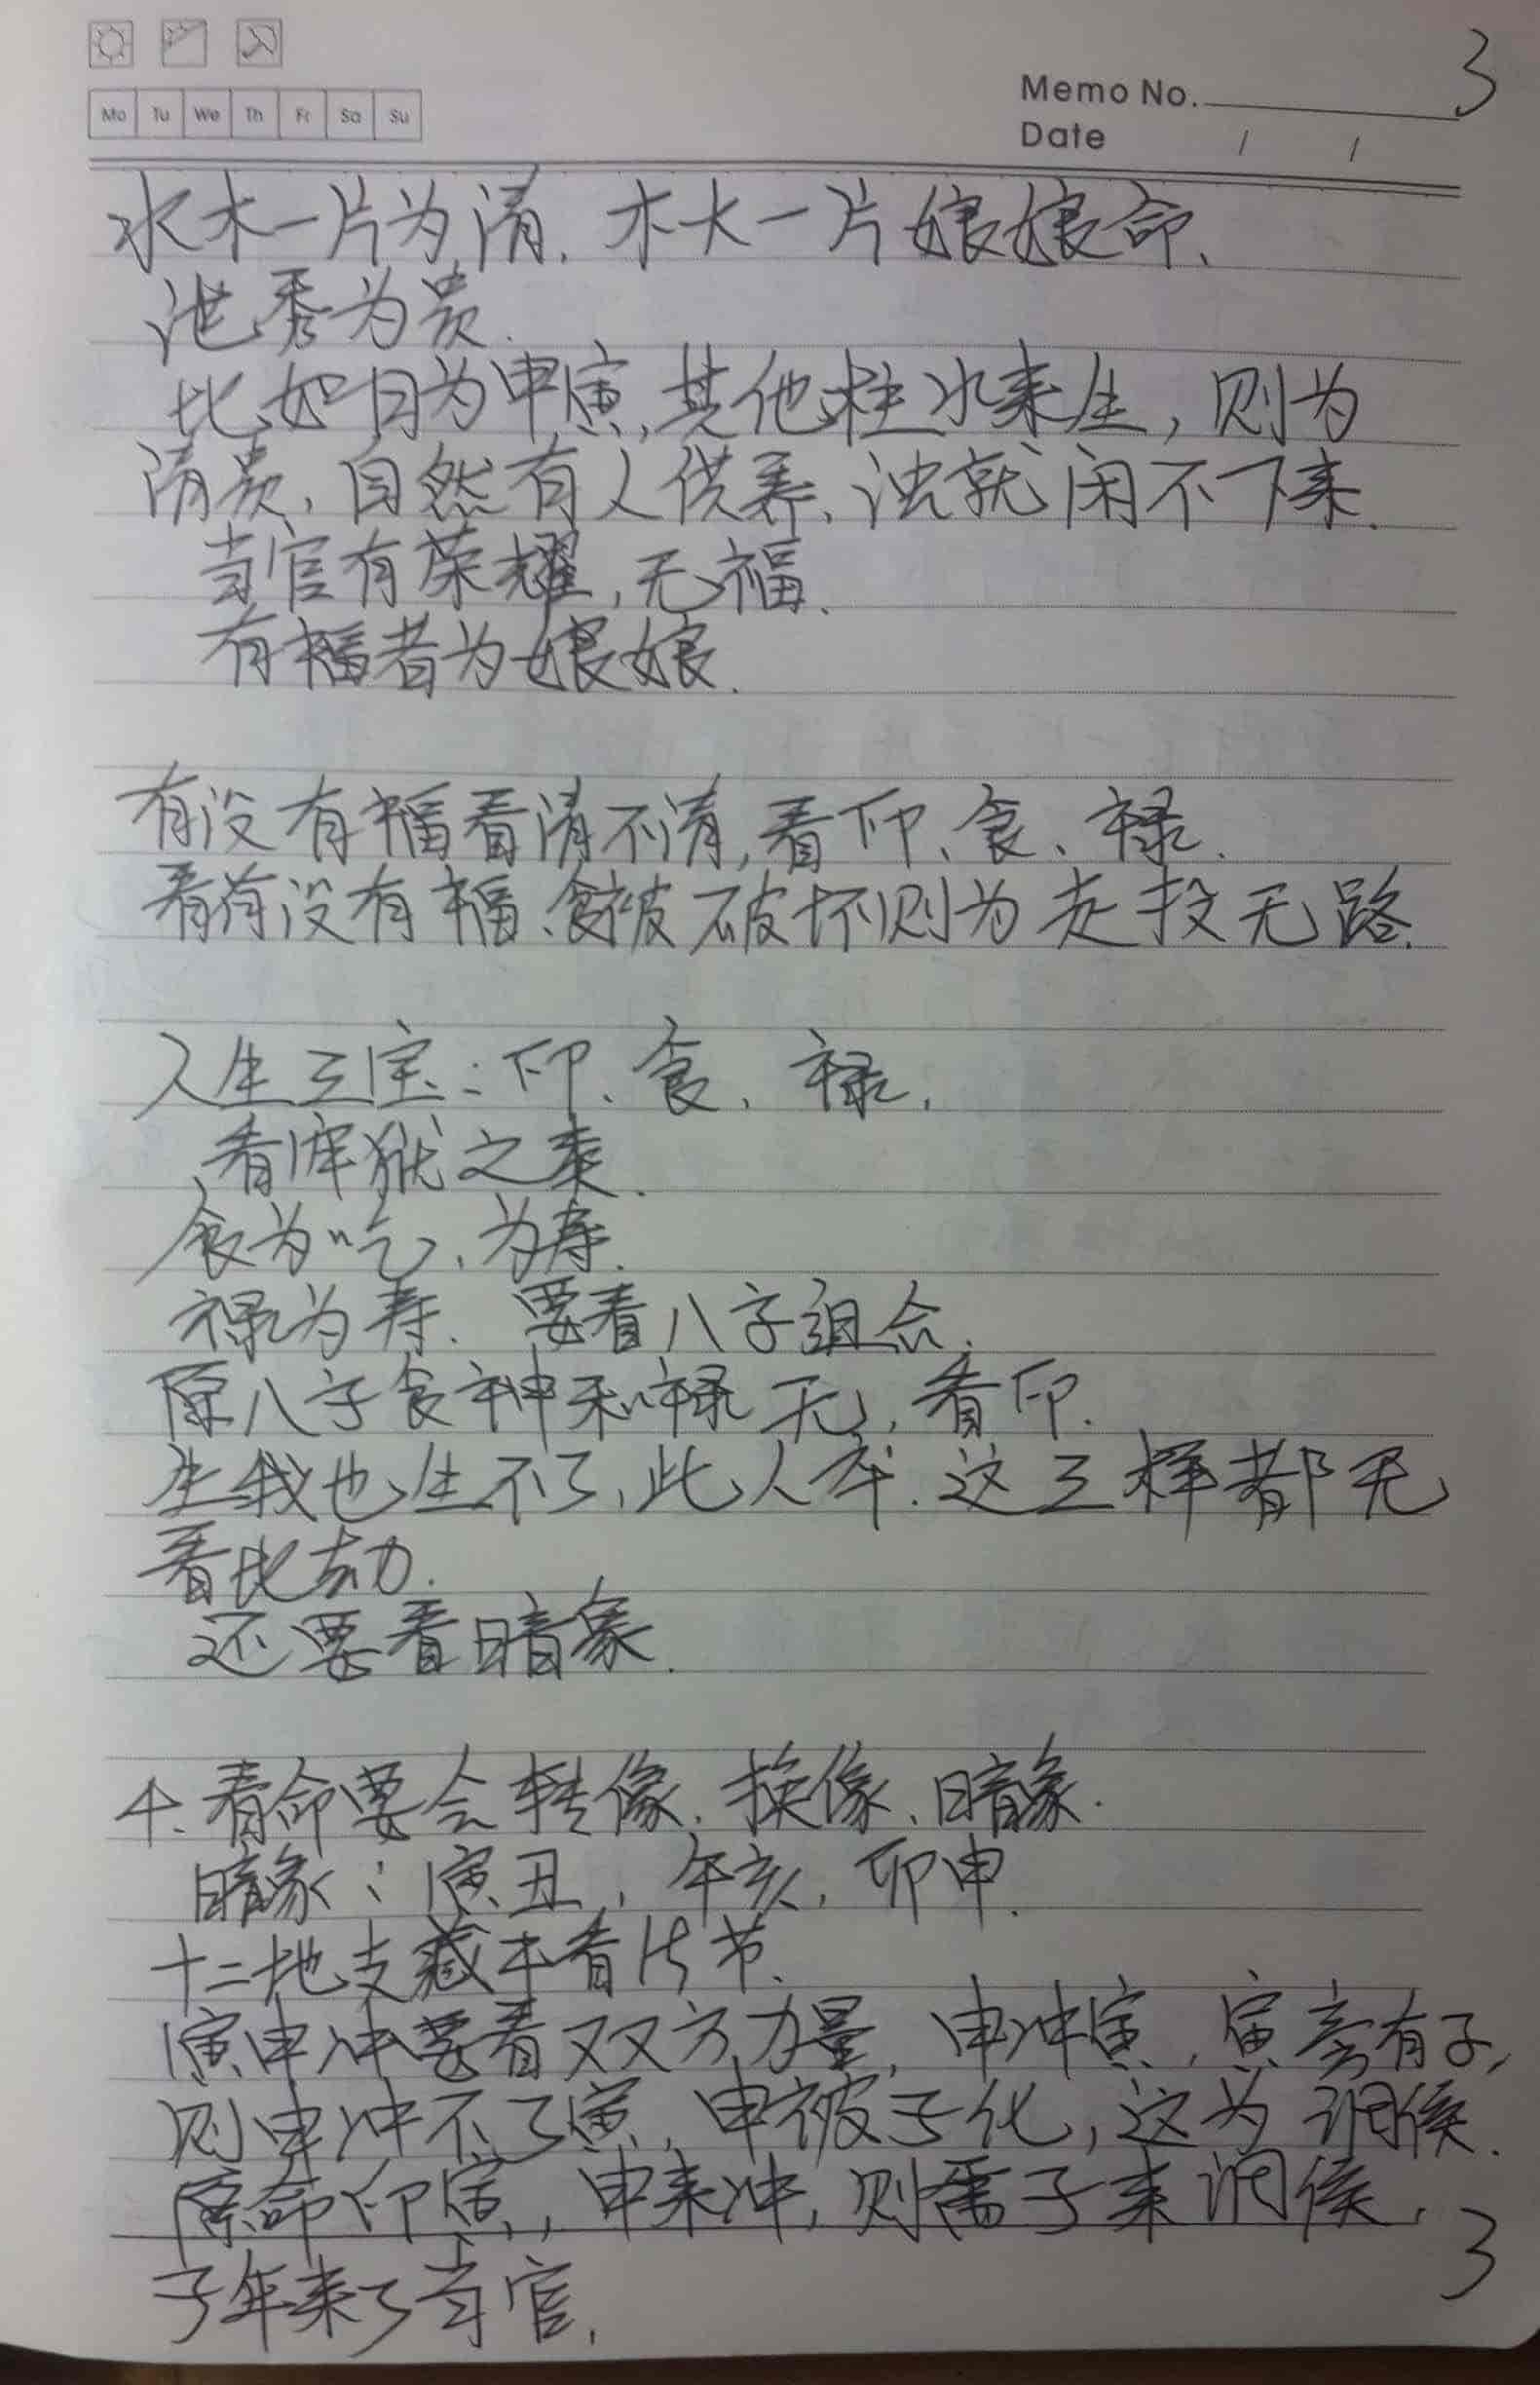 3
Memo No.
Mo Tu We Th Fr Sa Su
Date / /
水木一片为清.木火一片娘娘命、
泄秀为贵.
比如日为甲寅,其他柱水来生,则为
清贵、自然有人供养、浊就闲不下来.
当官有荣耀,无福.
有福者为娘娘.
有没有福看清不清,看印、食、禄.
看有没有福、食被破坏则为走投无路.
人生三宝:印、食、禄,
看牢狱之灾.
食为吃,为寿.
禄为寿. 要看八字组合.
原八字食神和禄无,看印.
生我也生不了,此人卒.这三样都无
看比劫.
还要看暗象.
4.看命要会转像.换像、暗象.
暗象:寅丑,午亥,卯申.
十二地支藏干看24节.
寅申冲要看双方力量,申冲寅,寅旁有子,
则申冲不了寅,申被子化,这为调候.
原命印寅,申来冲,则需子来调候,
子年来了当官.
3